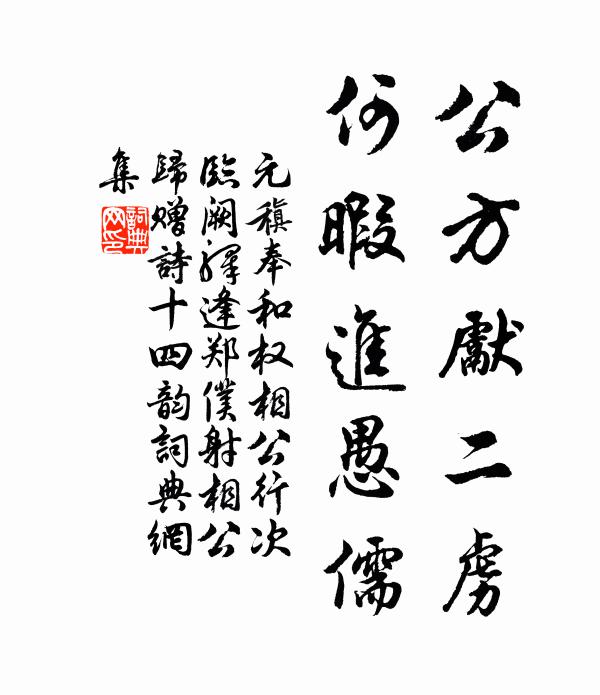 公方獻二虜
何暇進愚儒
元稹奉和权相公行次
臨阙驛逢郑僕射相公
歸赠詩十四韵詞典網
集
詞典
网印